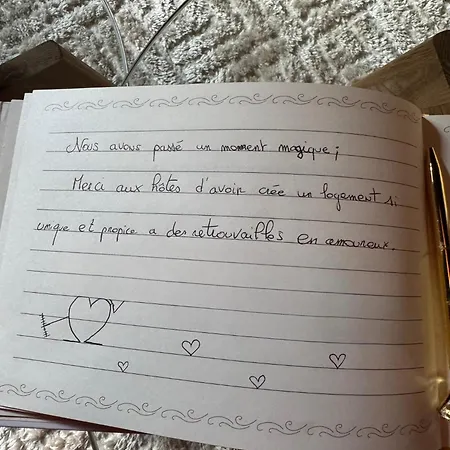 Nous avons passé un moment magique ;
Merci aux hôtes d'avoir crée un logement si
unique et propice a des retrouvailles en amoureux.